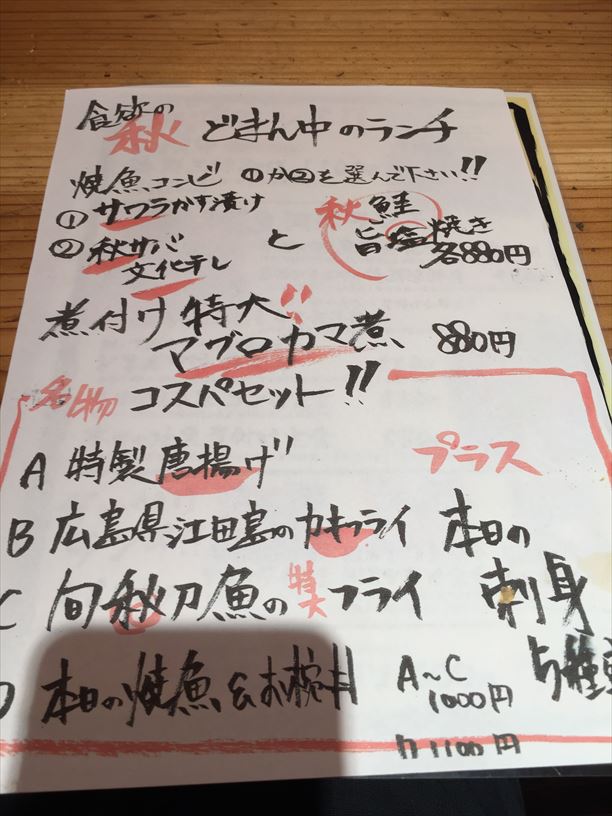 食欲の秋 どまん中のランチ
焼魚コンビ ①か②を選んで下さい!!
①サワラかす漬け
②秋サバ文化干し
と
秋鮭
旨塩焼き
各880円
煮付け 特大!!
マグロカマ煮 880円
名物 コスパセット!!
A 特製唐揚げ
プラス
B 広島県江田島のカキフライ
本日の
C 旬秋刀魚の特大フライ
刺身
D 本日の焼魚&お椀丼
5種
A~C
1000円
D 1100円